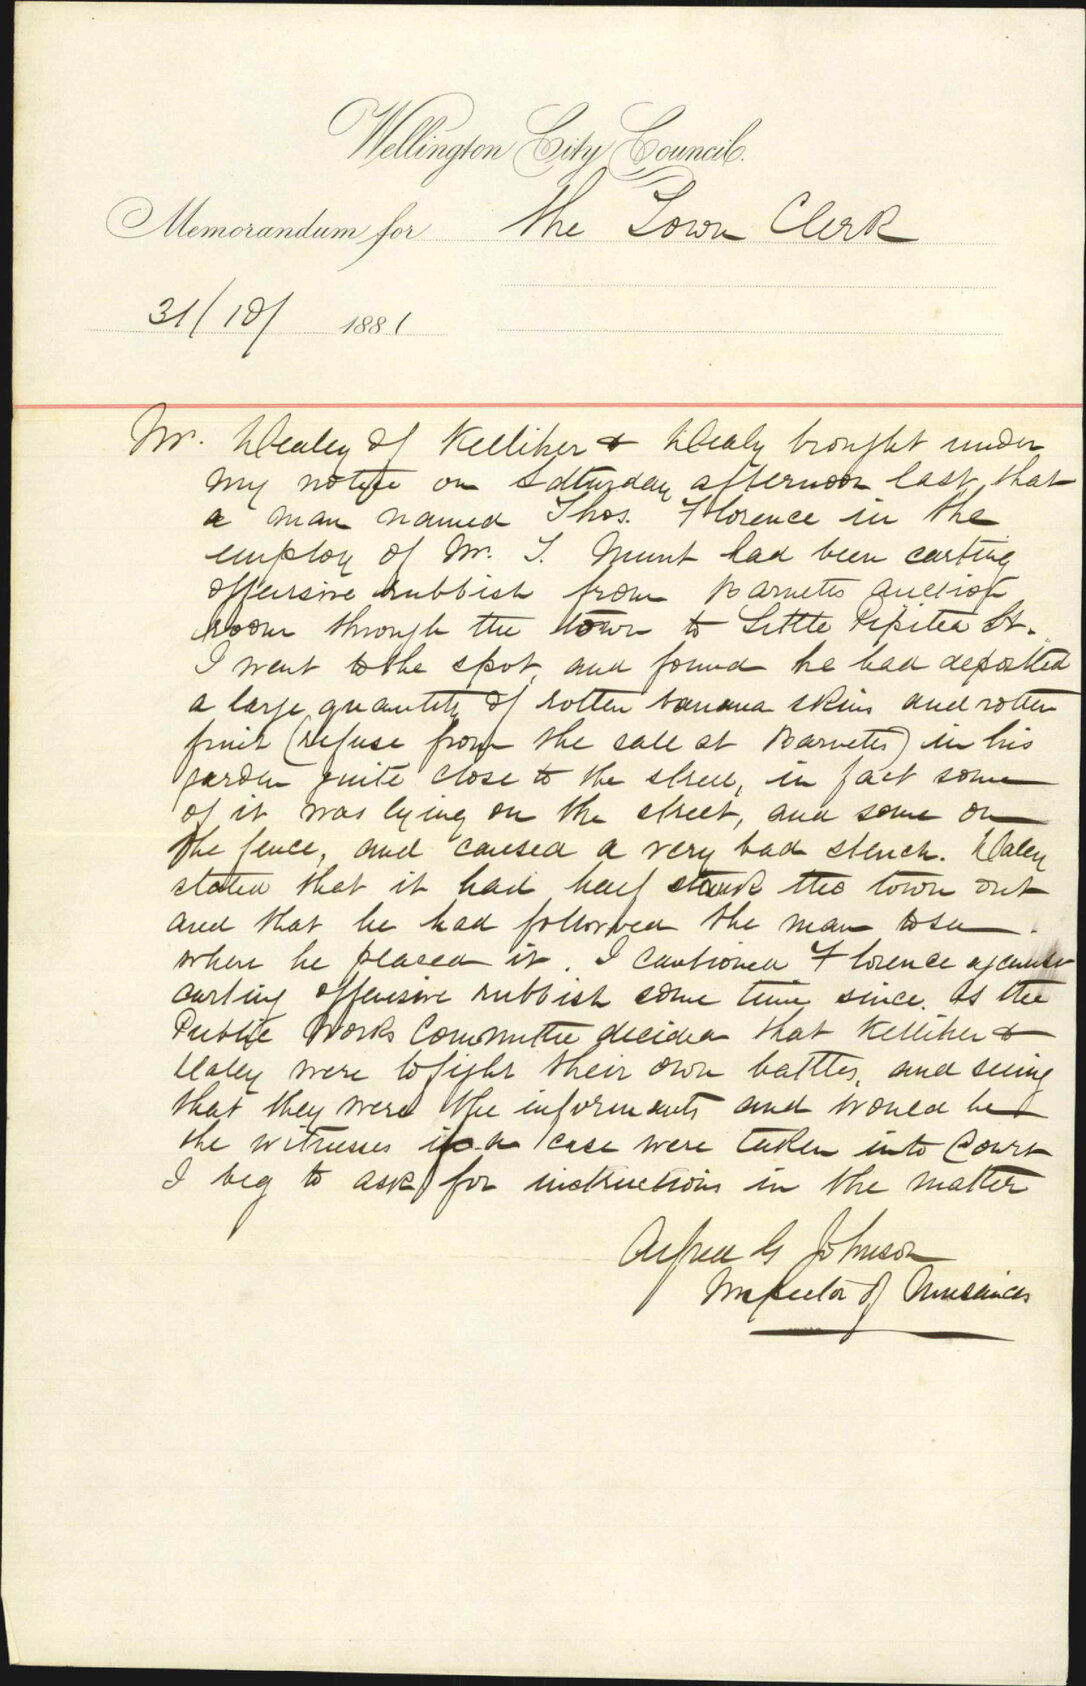 Wellington City Council.
Memorandum for the Town Clerk
31/10/ 1881
Mr. Dealey of Kelliher & Dealy brought under
my notice on Saturday afternoon last, that
a man named Thos. Florence in the
employ of Mr. T. Munt had been carting
offensive rubbish from Barnetts auction
room through the town to Little Pipitea St.
I went to the spot, and found he had deposited
a large quantity of rotten banana skins and rotten
fruit (refuse from the sale at Barnetts) in his
garden quite close to the street, in fact some
of it was lying on the street, and some on
the fence, and caused a very bad stench. Daley
stated that it had half stank the town out
and that he had followed the man to see
where he placed it. I cautioned Florence against
carting offensive rubbish some time since. As the
Public Works Committee decided that Kelliher &
Daley were to fight their own battles, and seeing
that they were the informants and would be
the witnesses if a case were taken into Court
I beg to ask for instructions in the matter
Alfred G Johnson
Inspector of Nuisances